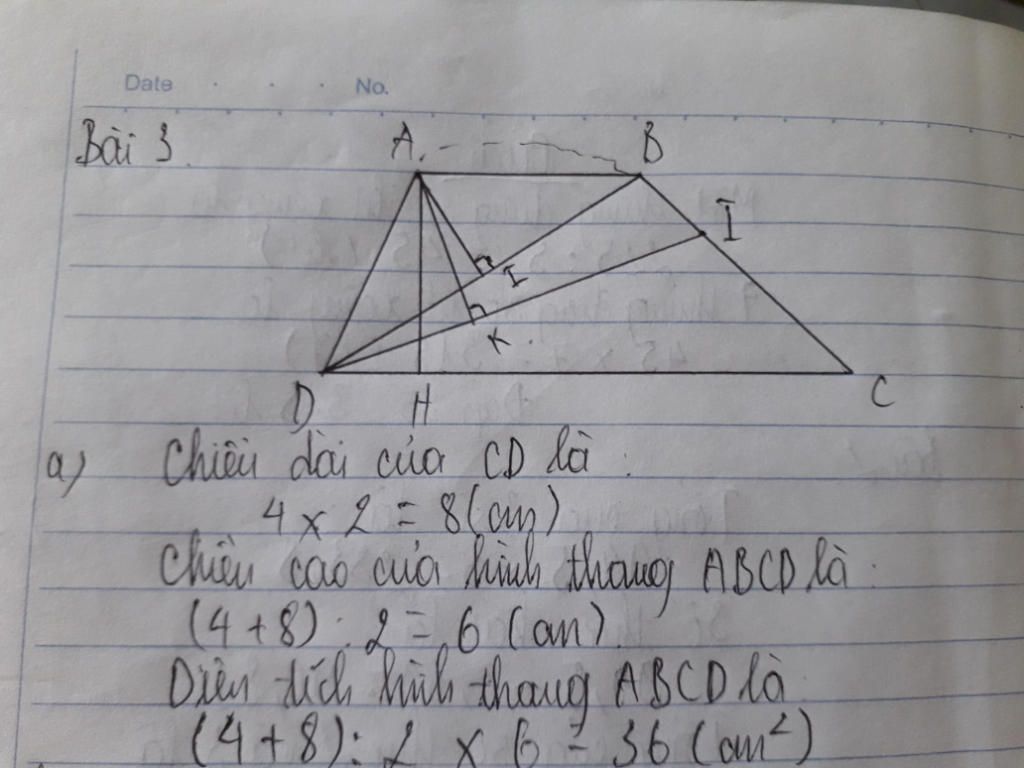 Date No.
Bài 3.
A B
I
I
K
D H C
a) Chiều dài của CD là :
4 x 2 = 8 (cm)
Chiều cao của hình thang ABCD là :
(4 + 8) : 2 = 6 (cm)
Diện tích hình thang ABCD là
(4 + 8) : 2 x 6 = 36 (cm²)